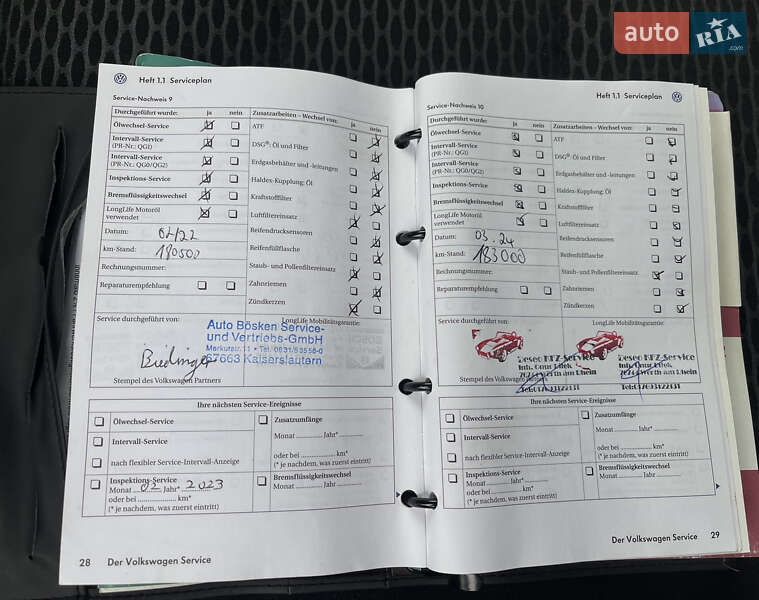 auto RIA.com
Heft 1.1 Serviceplan
Service-Nachweis 9
Durchgeführt wurde: ja nein
Ölwechsel-Service
Intervall-Service
(PR-Nr.: QGI)
Intervall-Service
(PR-Nr.: QG0/QG2)
Inspektions-Service
Bremsflüssigkeitswechsel
LongLife Motoröl
verwendet
Datum: 02/22
km-Stand: 180500
Rechnungsnummer:
Reparaturempfehlung
Zusatzarbeiten – Wechsel von: ja nein
ATF
DSG®: Öl und Filter
Erdgasbehälter und -leitungen
Haldex-Kupplung: Öl
Kraftstofffilter
Luftfiltereinsatz
Reifendrucksensoren
Reifenfüllflasche
Staub- und Pollenfiltereinsatz
Zahnriemen
Zündkerzen
Service durchgeführt von:
LongLife Mobilitätsgarantie:
Auto Bösken Service-
und Vertriebs-GmbH
Merkurstr. 11 • Tel. 0631/53556-0
67663 Kaiserslautern
Stempel des Volkswagen Partners
Ihre nächsten Service-Ereignisse
Ölwechsel-Service
Intervall-Service
nach flexibler Service-Intervall-Anzeige
Inspektions-Service
Monat 02 Jahr* 2023
oder bei ............ km*
(* je nachdem, was zuerst eintritt)
Zusatzumfänge
Monat ............ Jahr* ............
oder bei ............ km*
(* je nachdem, was zuerst eintritt)
Bremsflüssigkeitswechsel
Monat ............ Jahr ............
28 Der Volkswagen Service
Heft 1.1 Serviceplan
Service-Nachweis 10
Durchgeführt wurde: ja nein
Ölwechsel-Service
Intervall-Service
(PR-Nr.: QGI)
Intervall-Service
(PR-Nr.: QG0/QG2)
Inspektions-Service
Bremsflüssigkeitswechsel
LongLife Motoröl
verwendet
Datum: 03.24
km-Stand: 183000
Rechnungsnummer:
Reparaturempfehlung
Zusatzarbeiten – Wechsel von: ja nein
ATF
DSG®: Öl und Filter
Erdgasbehälter und -leitungen
Haldex-Kupplung: Öl
Kraftstofffilter
Luftfiltereinsatz
Reifendrucksensoren
Reifenfüllflasche
Staub- und Pollenfiltereinsatz
Zahnriemen
Zündkerzen
Service durchgeführt von:
LongLife Mobilitätsgarantie:
KFZ-Service
am Rhein
KFZ-Service
am Rhein
Stempel des Volkswagen
Ihre nächsten Service-Ereignisse
Ölwechsel-Service
Intervall-Service
nach flexibler Service-Intervall-Anzeige
Inspektions-Service
Monat ............ Jahr* ............
oder bei ............ km*
(* je nachdem, was zuerst eintritt)
Zusatzumfänge
Monat ............ Jahr* ............
oder bei ............ km*
(* je nachdem, was zuerst eintritt)
Bremsflüssigkeitswechsel
Monat ............ Jahr ............
Der Volkswagen Service 29